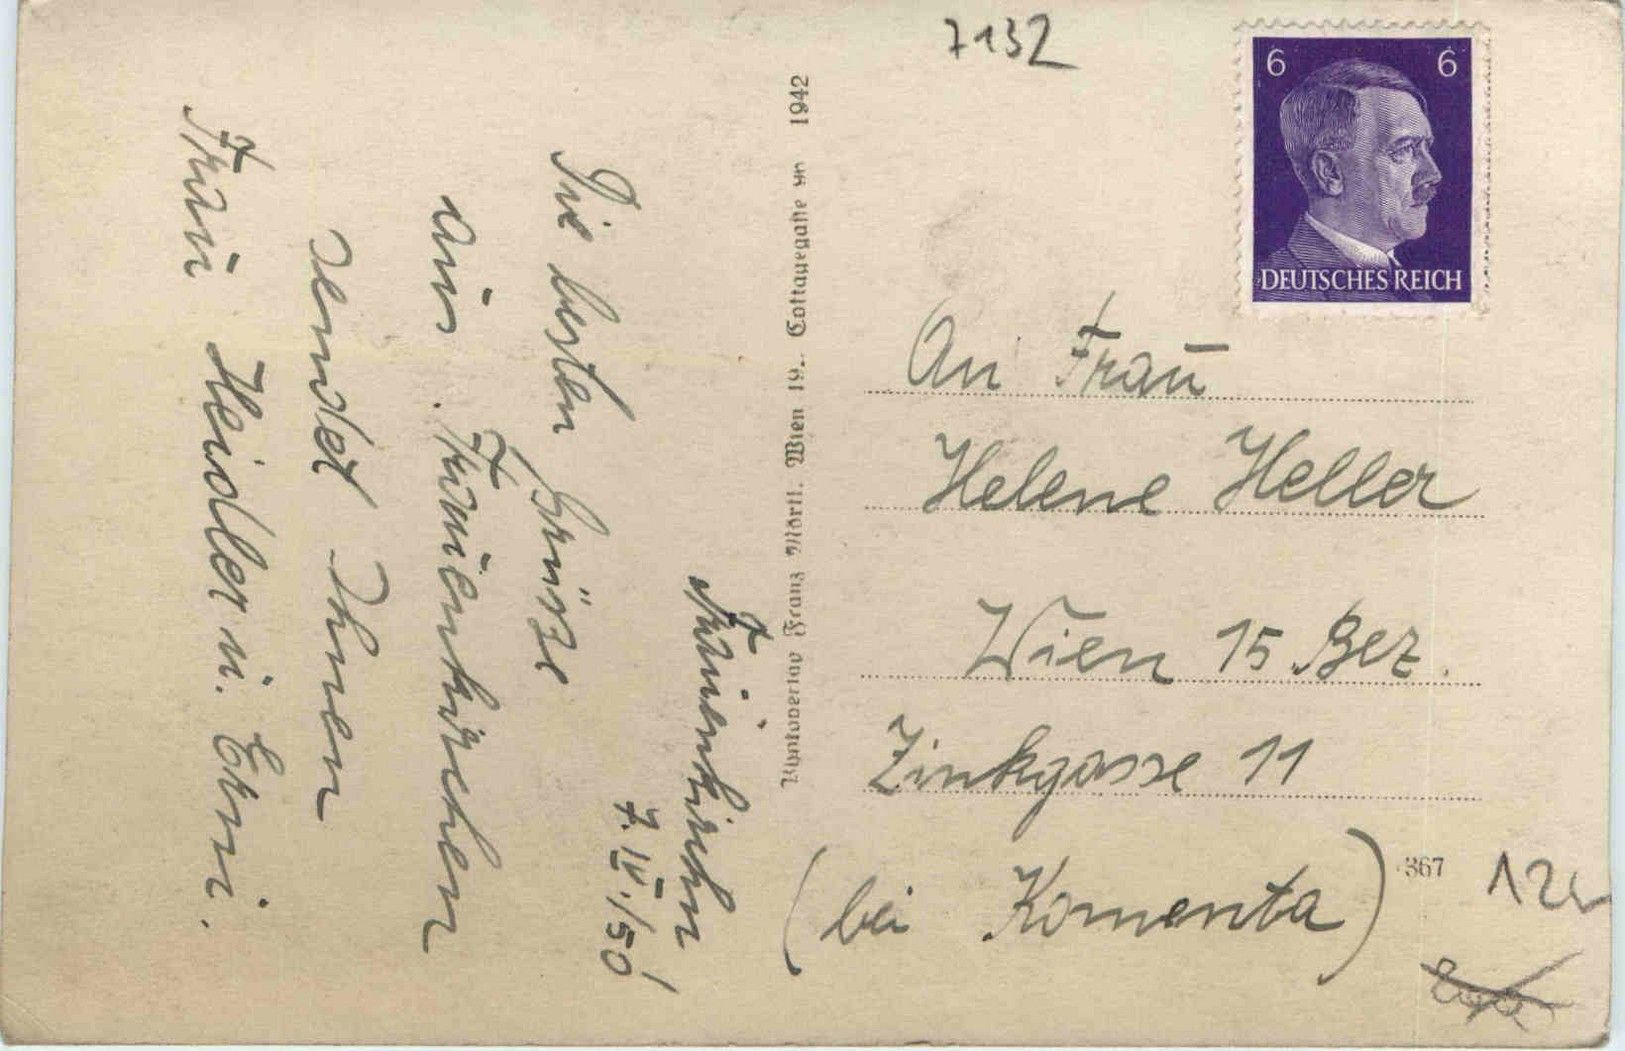 7132
6 6
DEUTSCHES REICH
Frauenkirchen
7. IV. /50
Die besten Grüsze
aus Frauenkirchen
sendet Ihnen
Frau Heidler u. Erni.
Photoverlag Franz Mörtl. Wien 19. Cottagegasse 1942
An Frau
Helene Heller
Wien 15 Bez.
Zinkgasse 11
(bei Komenta)
367
12